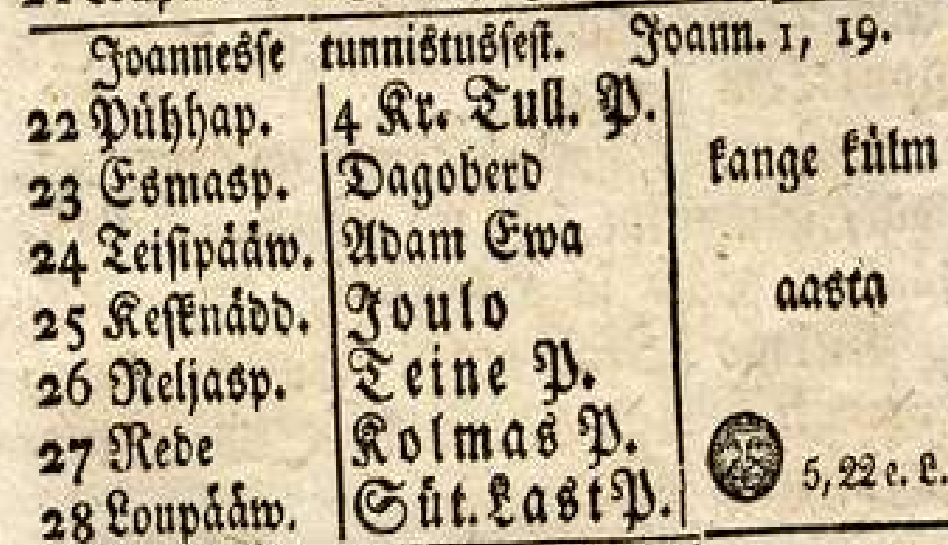 Joannesse tunnistussest. Joann. 1, 19.
22 Pühhap. 4 Kr. Tull. P.
23 Esmasp. Dagoberd kange külm
24 Teisipääw. Adam Ewa
25 Kesknädd. Joulo aasta
26 Neljasp. Teine P.
27 Rede Kolmas P.
28 Loupääw. Süt. Last P. 5, 22 e. L.